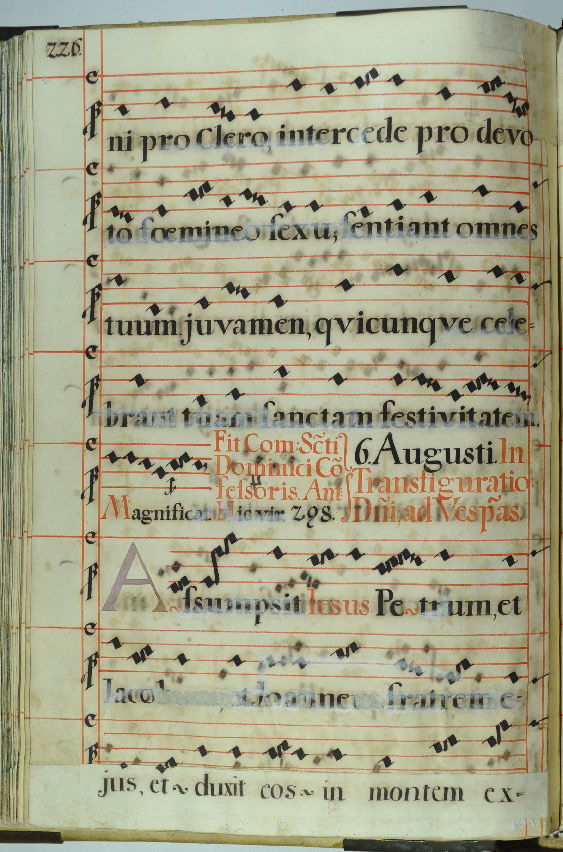 226
ni pro Clero, intercede pro devo
to fœmineo sexu, sentiant omnes
tuum juvamen, qvicunqve cele-
brant tuam sanctam festivitatem.
Fit Com: Scti
Dominici Cō
fessoris. Ant
Magnificat. Hic vir 298.
6. Augusti. In
Transfiguratio
Dñi, ad Vesp̃as.
Assumpsit Iesus Petrum, et
Iacob Ioanne fratrem e-
jus, et duxit eos in montem ex-